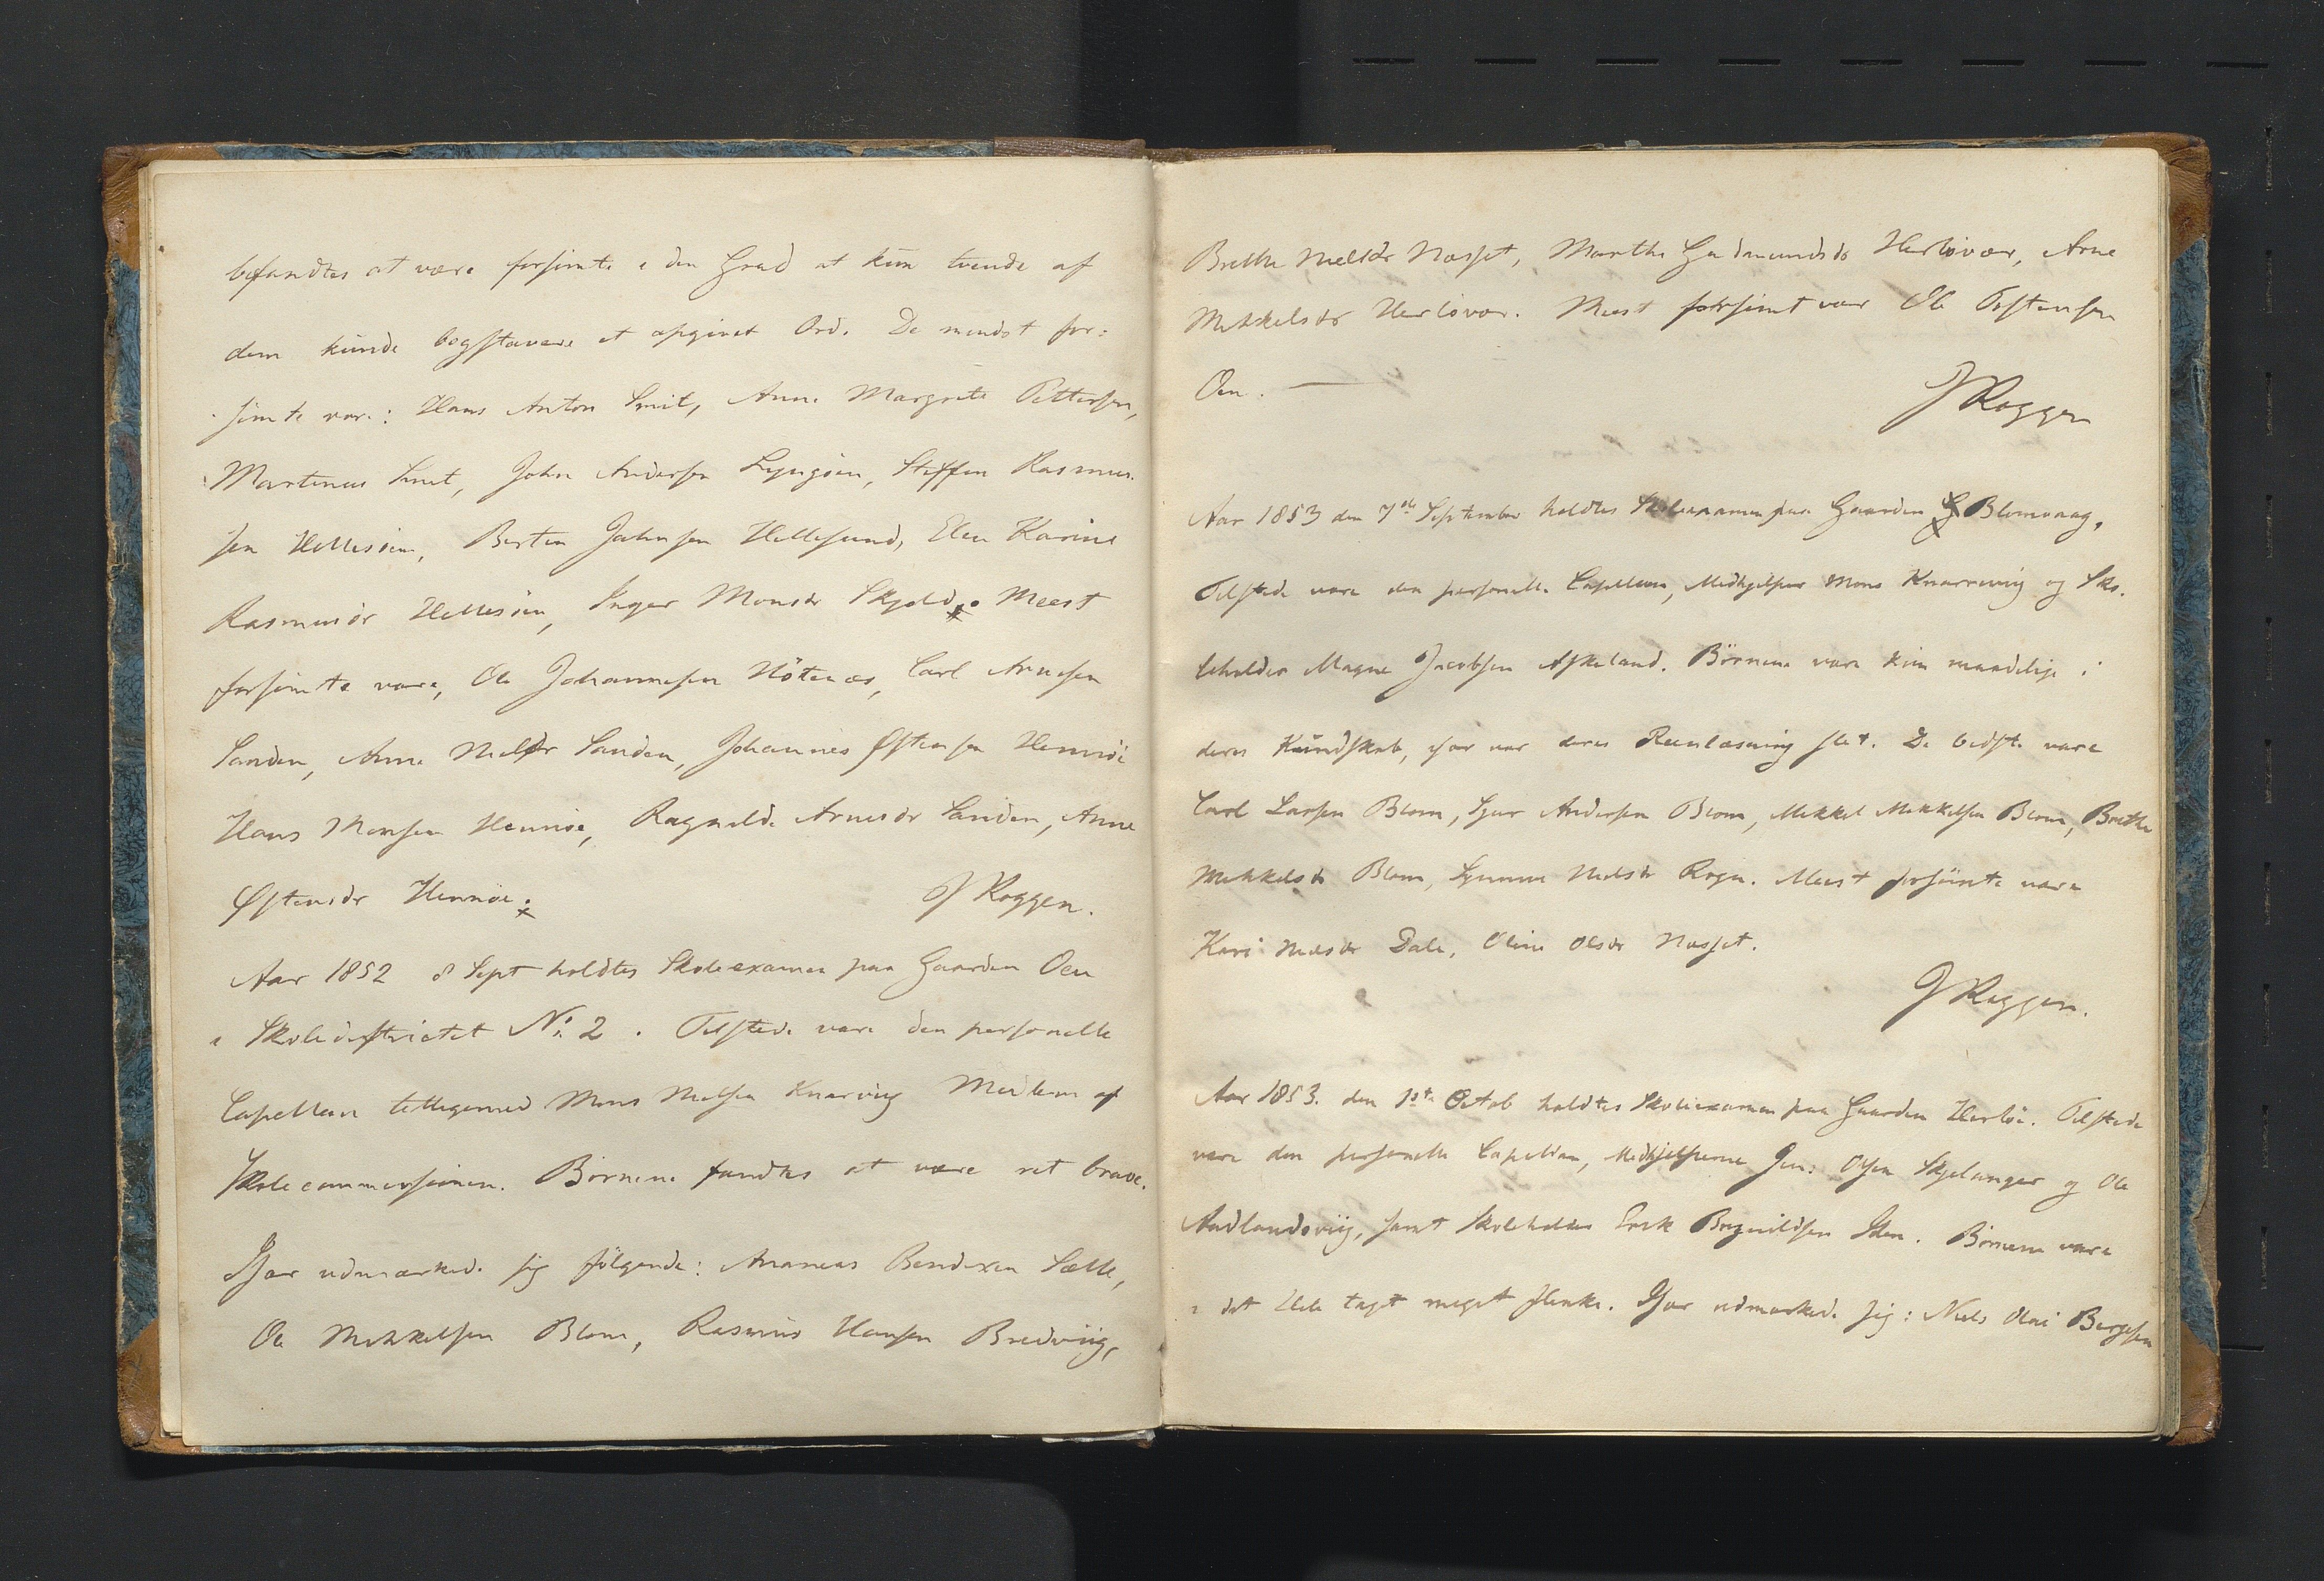 befandtes at være forsømte i den Grad at kun tvende af
dem kunde bogstavere et opgivet Ord. De mindst for-
sømte vare: Hans Anton Smit, Anne Margrete Pettersen,
Martinus Smit, John Andersen Lyngøen, Steffen Rasmus-
sen Hellesøen, Bertin Johnsen Hellesund, Elen Karine
Rasmusdr Hellesøen, Inger Monsdr Skjold. Meest
forsømte vare, Ole Johannesen Nøtenæs, Carl Arnesen
Sanden, Anne Nielsdr Sanden, Johannes Østensen Hennøe
Hans Monsen Hennøe, Ragnilde Arnesdr Sanden, Anne
Østensdr Hennøe.
J Roggen.
Aar 1852 8 Sept holdtes Skoleexamen paa Gaarden Oen
i Skoledistrictet No 2. Tilstede vare den personelle
Capellan tilligemed Mons Nielsen Knarvig Medlem af
Skolecommissionen. Børnene fandtes at være ret brave.
Især udmærkede sig følgende: Ananias Bendixen Sælle,
Ole Mikkelsen Blom, Rasmus Hansen Bredviig,
Brethe Nielsdr Næsset, Marthe Gudmundsdr Herløvær, Arne
Mikkelsdr Herløvær. Meest forsømt var Ole Tostensen
Oen.
J Roggen
Aar 1853 den 7de September holdtes Skoleexamen paa Gaarden Blomvaag.
Tilstede vare den personelle Capellan, Medhjelper Mons Knarreviig og Sko-
leholder Magne Jacobsen Askeland. Børnene vare kun maadelige i
deres Kundskab, især var deres Reenlæsning slet. De bedste vare
Carl Larsen Blom, Sjur Andersen Blom, Mikkel Mikkelsen Blom, Brethe
Mikkelsdr Blom, Synneve Nielsdr Rogn. Meest forsømte vare
Kari Nielsdr Dale, Oline Olsdr Næsset.
J Roggen.
Aar 1853. den 1ste Octob holdtes Skoleexamen paa Gaarden Herløe. Tilstede
vare den personelle Capellan, Medhjelperne Jens Olsen Skjelanger og Ole
Aadlandsviig, samt Skoleholder Erik Brynildsen Iden. Børnene vare
i det Hele taget meget flinke. Især udmærkede sig: Niels Olai Børgesen